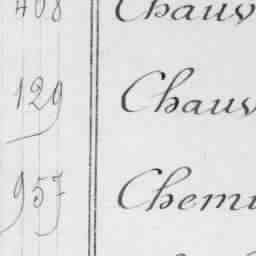 408 Chauv
129 Chauv
957 Chemi